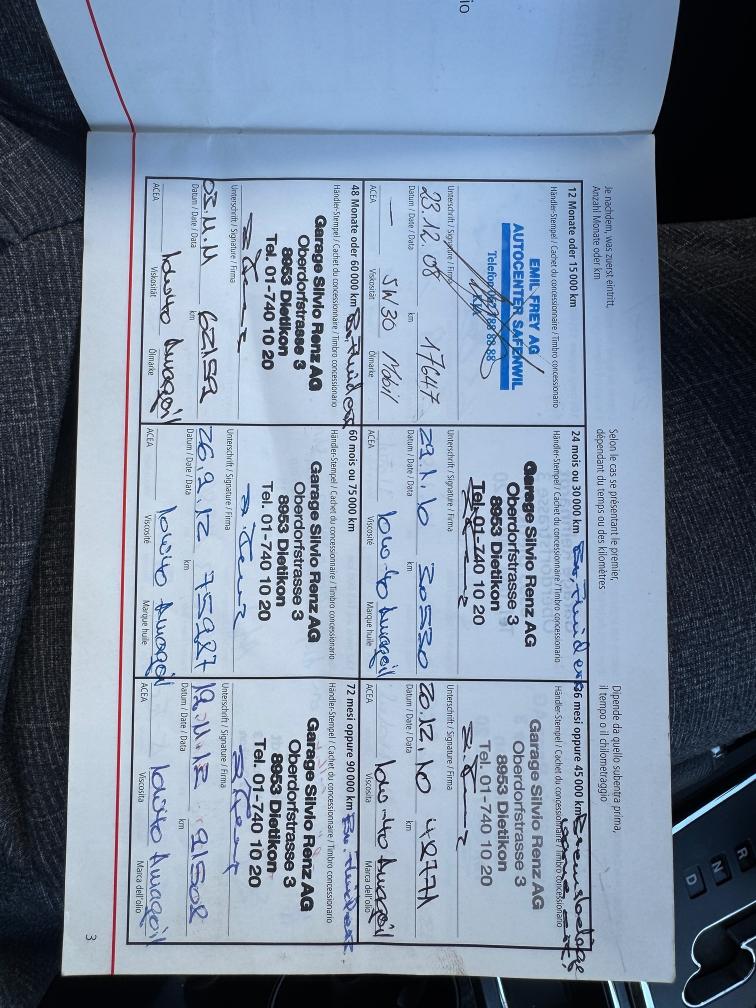 Je nachdem, was zuerst eintritt,
Anzahl Monate oder km
Selon le cas se présentant le premier,
dépendant du temps ou des kilomètres
Dipende da quello subentra prima,
il tempo o il chilometraggio
12 Monate oder 15 000 km
Händler-Stempel / Cachet du concessionnaire / Timbro concessionario
EMIL FREY AG
AUTOCENTER SAFENWIL
Unterschrift / Signature / Firma
23.12.08 17647
Datum / Date / Data km
— 5W30 Mobil
ACEA Viskosität Ölmarke
24 mois ou 30 000 km
Händler-Stempel / Cachet du concessionnaire / Timbro concessionario
Garage Silvio Renz AG
Oberdorfstrasse 3
8953 Dietikon
Tel. 01-740 10 20
Unterschrift / Signature / Firma
29.1.10 30530
Datum / Date / Data km
10W40
ACEA Viscosité Marque huile
36 mesi oppure 45 000 km
Händler-Stempel / Cachet du concessionnaire / Timbro concessionario
Garage Silvio Renz AG
Oberdorfstrasse 3
8953 Dietikon
Tel. 01-740 10 20
Unterschrift / Signature / Firma
20.12.10 48771
Datum / Date / Data km
10W-40
ACEA Viscosita Marca dell'olio
48 Monate oder 60 000 km
Händler-Stempel / Cachet du concessionnaire / Timbro concessionario
Garage Silvio Renz AG
Oberdorfstrasse 3
8953 Dietikon
Tel. 01-740 10 20
Unterschrift / Signature / Firma
03.11.11 62152
Datum / Date / Data km
10W40
ACEA Viskosität Ölmarke
60 mois ou 75 000 km
Händler-Stempel / Cachet du concessionnaire / Timbro concessionario
Garage Silvio Renz AG
Oberdorfstrasse 3
8953 Dietikon
Tel. 01-740 10 20
Unterschrift / Signature / Firma
26.9.12 75987
Datum / Date / Data km
10W40
ACEA Viscosité Marque huile
72 mesi oppure 90 000 km
Händler-Stempel / Cachet du concessionnaire / Timbro concessionario
Garage Silvio Renz AG
Oberdorfstrasse 3
8953 Dietikon
Tel. 01-740 10 20
Unterschrift / Signature / Firma
91508
Datum / Date / Data km
10W40
ACEA Viscosita Marca dell'olio
3
R
N
D